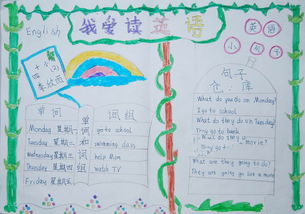 我爱读英语
English
英语
小句子
单词
词组
单词和词组
Monday 星期一
go to school
Tuesday 星期二
swimming class
Wednesday 星期三
help Mom
Thursday 星期四
watch TV
Friday 星期五
句子
仓库
What do you do on Monday?
I go to school
What do they do on Tuesday?
They go to
movie?
What are they going to do?
They are going to